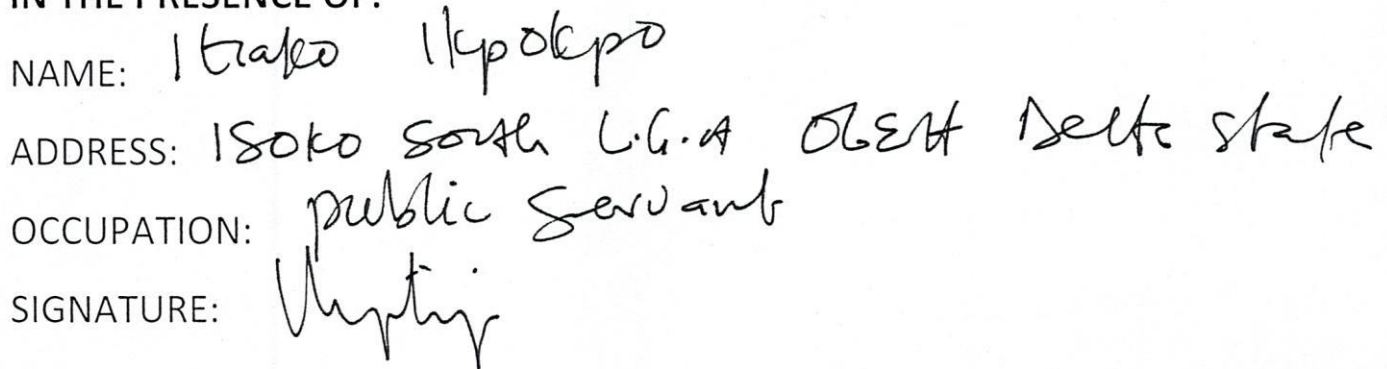 IN THE PRESENCE OF:
NAME: Itrako Ikpokpo
ADDRESS: ISOKO South L.G.A OLEH Delta State
OCCUPATION: public Servant
SIGNATURE: